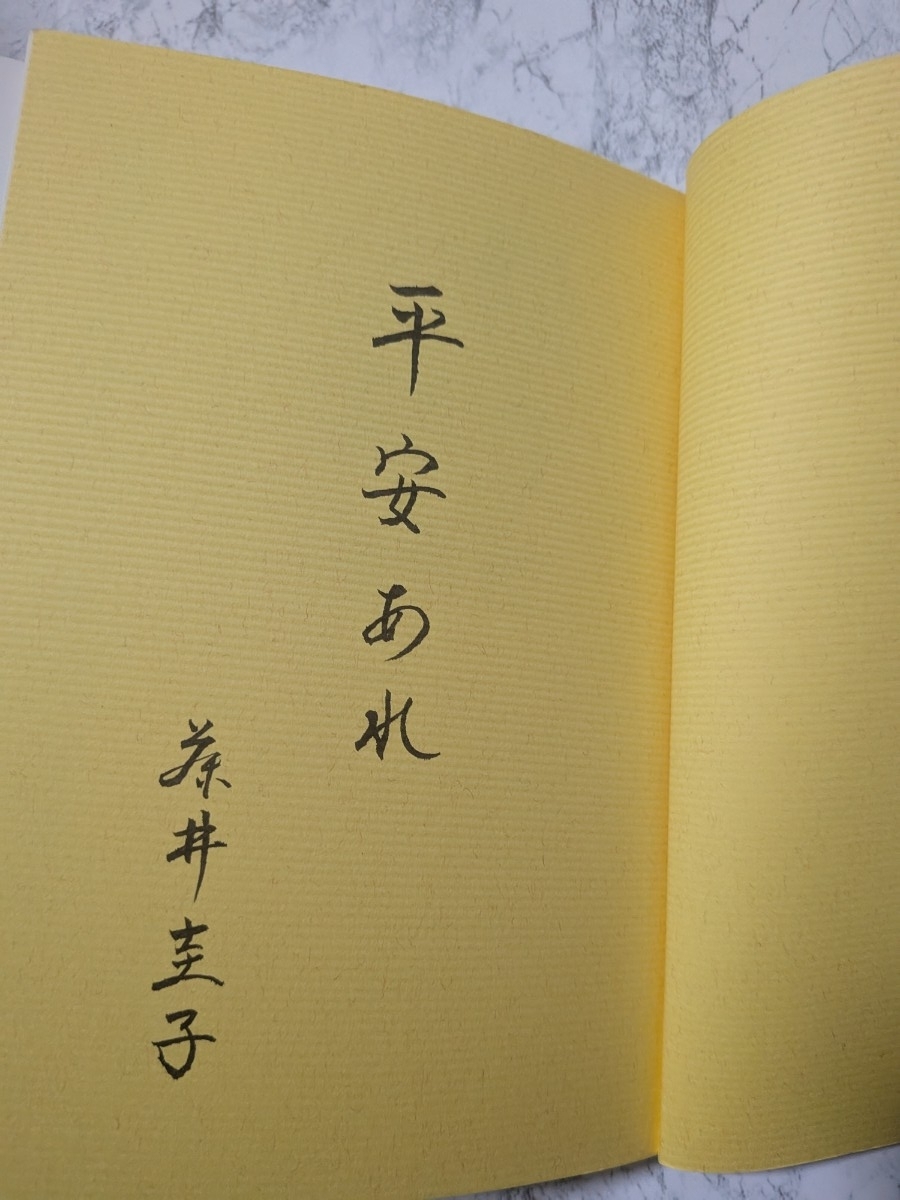 平安あれ
茶井圭子